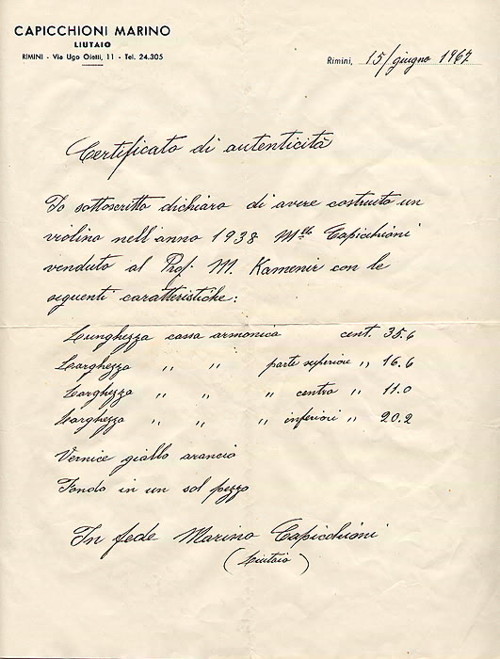 CAPICCHIONI MARINO
LIUTAIO
RIMINI - Via Ugo Oietti, 11 - Tel. 24.305
Rimini, 15/giugno 1967
Certificato di autenticità
Io sottoscritto dichiaro di avere costruito un
violino nell'anno 1938 M.llo Capicchioni
venduto al Prof. M. Kamenir con le
seguenti caratteristiche:
Lunghezza cassa armonica cent. 35.6
Larghezza " " parte superiore " 16.6
Larghezza " " " centro " 11.0
Larghezza " " " inferiori " 20.2
Vernice giallo arancio
Fondo in un sol pezzo
In fede Marino Capicchioni
(Liutaio)